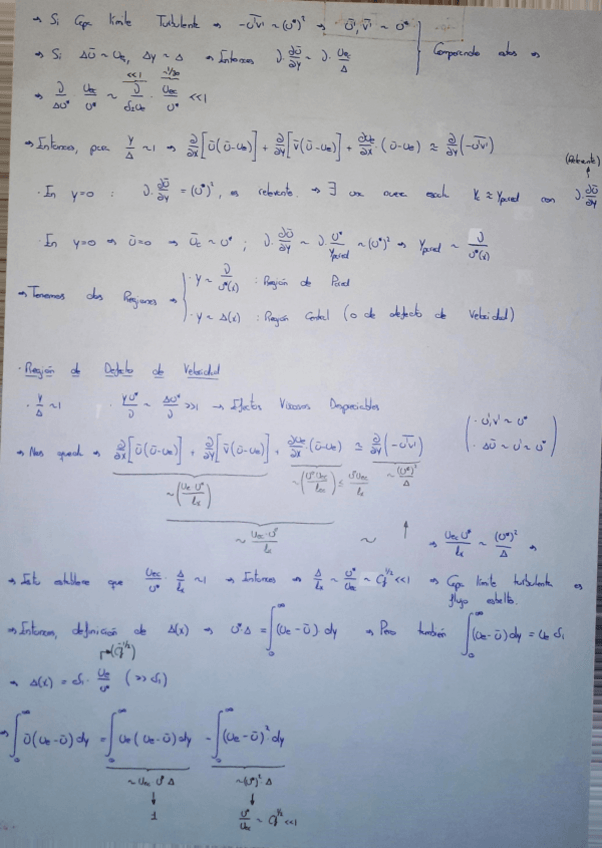 → Si Capa límite Turbulenta → -u'v' ~ (u*)² → u', v' ~ u*
→ Si Δū ~ ue, Δy ~ Δ → Entonces ν·∂ū/∂y ~ ν·ue/Δ } Comparando estos →
→ ν/Δu* · uec/u* ~ ν/δ₁ue · uec/u* <<1
→ Entonces, para y/Δ ~1 → ∂/∂x[ū(ū-ue)] + ∂/∂y[v̄(ū-ue)] + ∂ue/∂x·(ū-ue) ≈ ∂/∂y(-u'v')
(Relevante)
· En y=0 : ν·∂ū/∂y = (u*)², es relevante → ∃ una nueva escala con ν·∂ū/∂y
· En y=0 → ū=0 → ~ u* ; ν·∂ū/∂y ~ ν·u*/ypared ~ (u*)² → ypared ~ ν/u*(x)
→ Tenemos dos Regiones → { · y ~ ν/u*(x) : Región de Pared
· y ~ Δ(x) : Región Central (o de defecto de Velocidad)
· Región de Defecto de Velocidad
· y/Δ ~1 · yu*/ν ~ Δu*/ν >>1 → Efectos Viscosos Despreciables
( · u', v' ~ u*
· Δū ~ u' ~ u* )
→ Nos queda → ∂/∂x[ū(ū-ue)] + ∂/∂y[v̄(ū-ue)] + ∂ue/∂x·(ū-ue) ≈ ∂/∂y(-u'v')
~(uec u*/lx) ~(u* uec/lec) ≤ u*uec/lx ~(u*)²/Δ
~ uec·u*/lx ~ ↑ → uec u*/lx ~ (u*)²/Δ →
→ Esto establece que uec/u* · Δ/lx ~1 → Entonces → Δ/lx ~ u*/uec ~ Cf^1/2 <<1 → Capa límite turbulenta es
flujo esbelto.
→ Entonces, definición de Δ(x) → u*Δ = ∫₀^∞ (ue-ū) dy → Pero también ∫₀^∞ (ue-ū) dy = ue δ₁
→ Δ(x) = δ₁·ue/u* (>> δ₁)
→ ∫₀^∞ ū(ue-ū) dy = ∫₀^∞ ue(ue-ū) dy - ∫₀^∞ (ue-ū)² dy
~ uec u* Δ ~(u*)²·Δ
↓ ↓
1 u*/uec ~ Cf^1/2 <<1